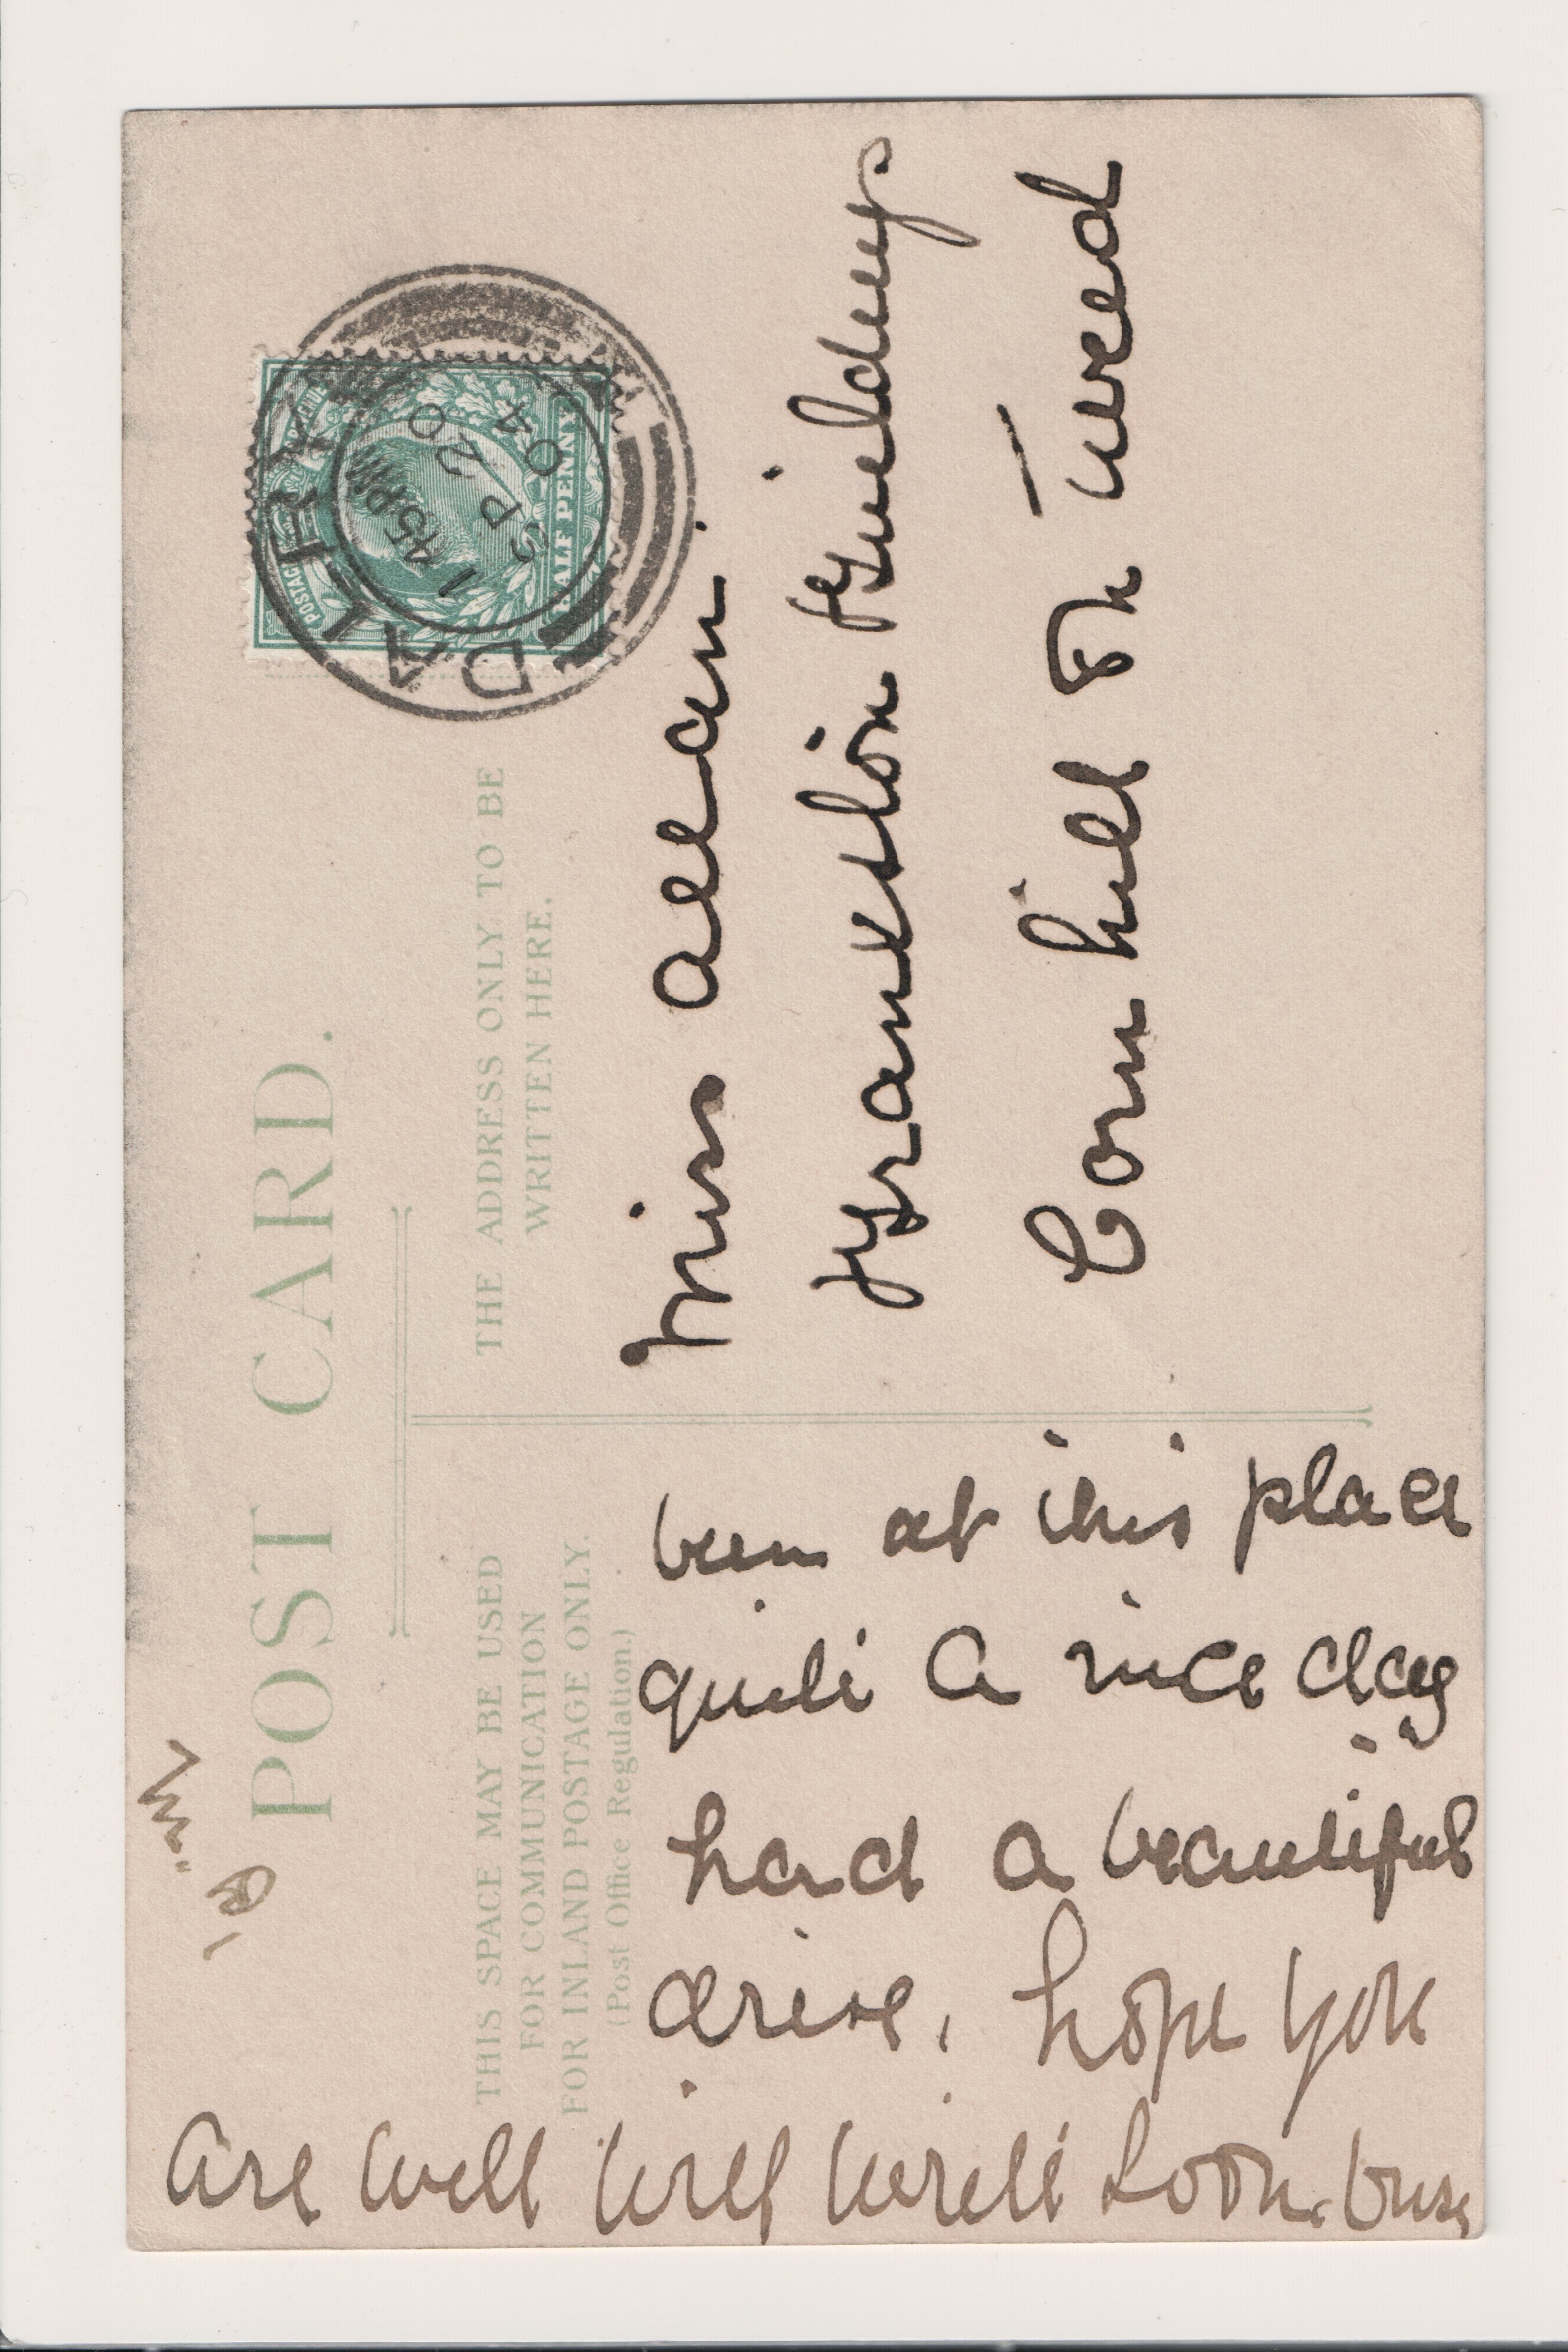 POST CARD.
THIS SPACE MAY BE USED
FOR COMMUNICATION
FOR INLAND POSTAGE ONLY.
(Post Office Regulation.)
THE ADDRESS ONLY TO BE
WRITTEN HERE.
POSTAGE REVENUE
HALF PENNY
DALRY
1 45 PM
SP 20
04
Miss
Frankthon Buildings
Cornhill On Tweed
been at this place
quite a nice day
had a beautiful
drive, hope you
are well will write soon. busy